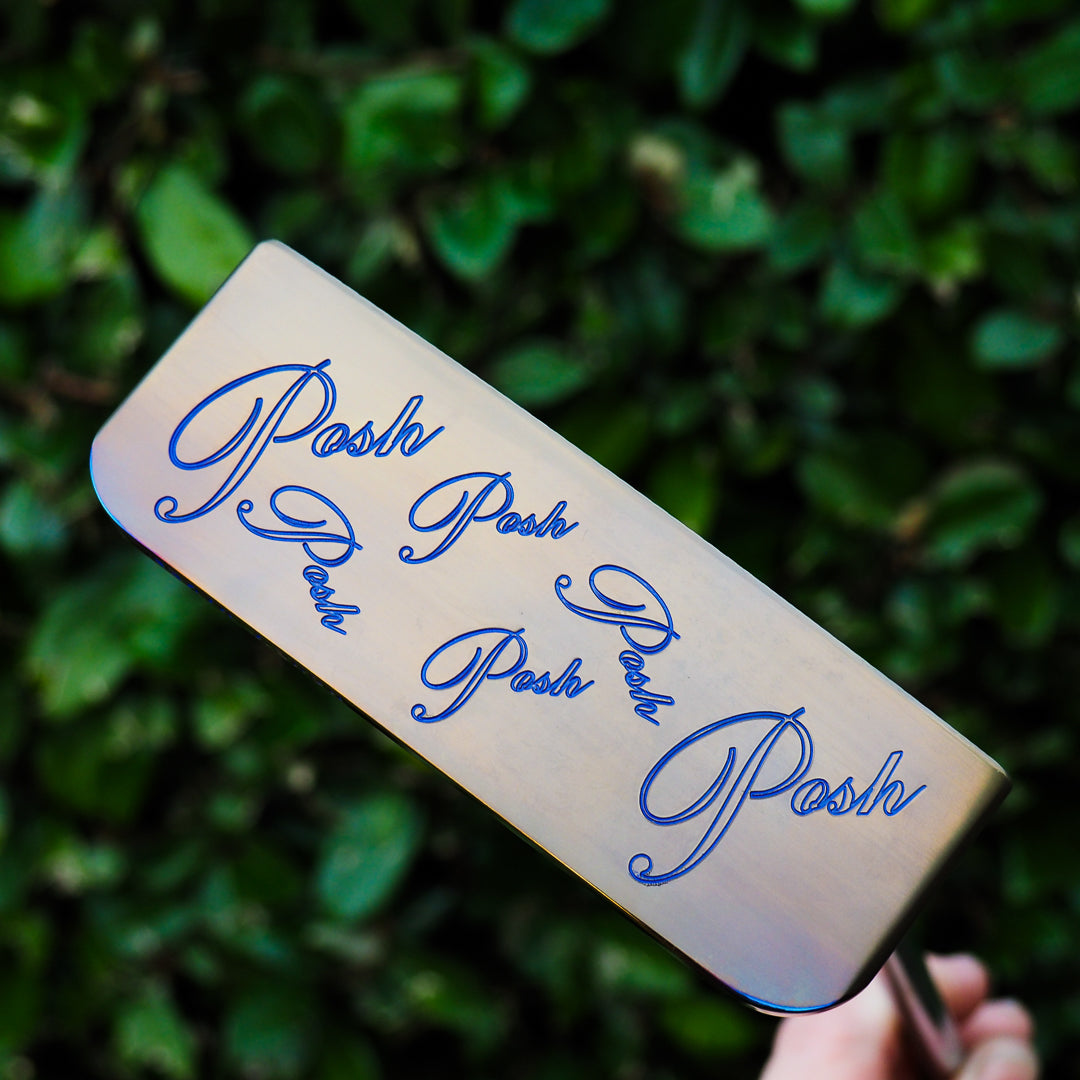 Posh
Posh
Posh
Posh
Posh
Posh
Posh